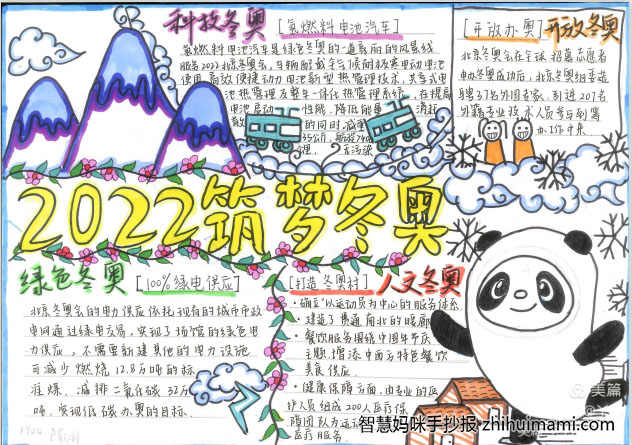 科技冬奥 [氢燃料电池汽车]
氢燃料电池汽车是绿色冬奥的一道亮丽的风景线
服务2022北京冬奥会,车辆耐低
使用高效便捷动力电池新型热管理技术,
池热管理及整车一体化热管理系统,在提高
电池启动 性能,降低能量 消耗
的同时,
[开放办奥] 开放冬奥
北京冬奥会在全球招募志愿者
申办冬奥成功后,北京冬奥组委选
聘37名外国专家,引进207名
外籍专业技术人员参与到筹
办工作中来
2022筑梦冬奥
绿色冬奥 [100%绿电供应]
北京冬奥会的电力供应依托现有的城市市政
电网通过绿电交易,实现3场馆的绿色电
力供应,不需要新建其他的电力设施
可减少燃烧12.8万吨的标
准煤,减排二氧化碳32万
吨,实现低碳办奥的目标.
[打造冬奥村] 人文冬奥
·确立"以运动员为中心的服务体系
·建造了贯通南北的暖廊
·餐饮服务围绕中国年节庆
主题,增添中西方特色餐饮
美食供应.
·健康保障方面,由专业的医
护人员组成200人医疗保
障团队为运
医疗服务.
美篇
智慧妈咪手抄报 zhihuimami.com